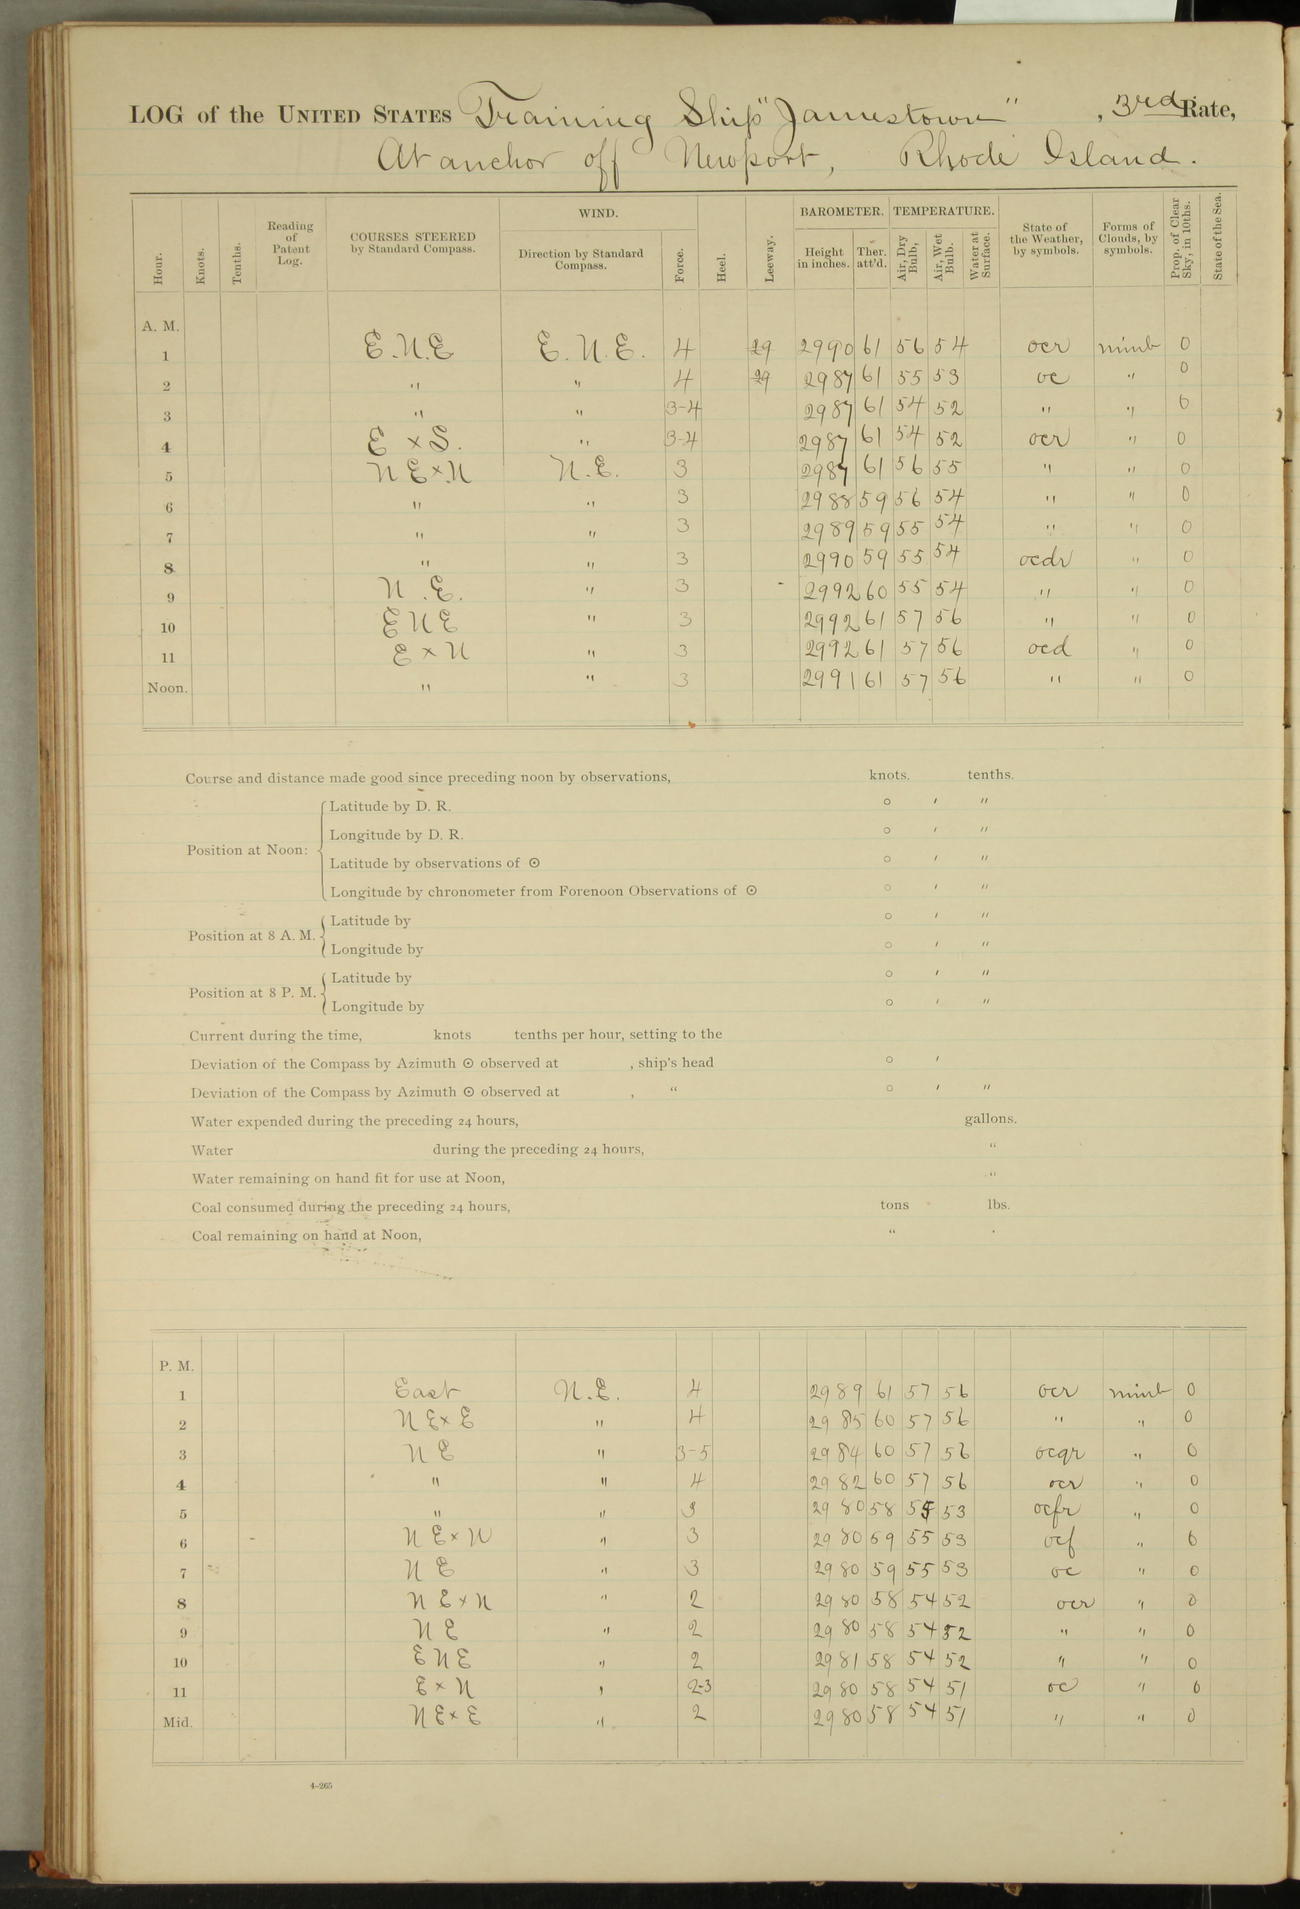 LOG of the UNITED STATES Training Ship "Jamestown", 3rd Rate,
At anchor off Newport, Rhode Island.
Hour. Knots. Tenths. Reading of Patent Log. COURSES STEERED by Standard Compass. WIND. Direction by Standard Compass. Force. Heel. Leeway. BAROMETER. Height in inches. Ther. att'd. TEMPERATURE. Air, Dry Bulb, Air, Wet Bulb. Water at Surface. State of the Weather, by symbols. Forms of Clouds, by symbols. Prop. of Clear Sky, in 10ths. State of the Sea.
A. M.
1 E.N.E E.N.E. 4 29 2990 61 56 54 ocr nimb 0
2 " " 4 29 2987 61 55 53 oc " 0
3 " " 3-4 2987 61 54 52 " " 0
4 E x S. " 3-4 2987 61 54 52 ocr " 0
5 N E x N N.E. 3 2987 61 56 55 " " 0
6 " " 3 2988 59 56 54 " " 0
7 " " 3 2989 59 55 54 " " 0
8 " " 3 2990 59 55 54 ocdr " 0
9 N.E. " 3 2992 60 55 54 " " 0
10 E N E " 3 2992 61 57 56 " " 0
11 E x N " 3 2992 61 57 56 ocd " 0
Noon. " " 3 2991 61 57 56 " " 0
Course and distance made good since preceding noon by observations, knots. tenths.
Position at Noon:
Latitude by D. R. ° ′ ″
Longitude by D. R. ° ′ ″
Latitude by observations of ☉ ° ′ ″
Longitude by chronometer from Forenoon Observations of ☉ ° ′ ″
Position at 8 A. M.
Latitude by ° ′ ″
Longitude by ° ′ ″
Position at 8 P. M.
Latitude by ° ′ ″
Longitude by ° ′ ″
Current during the time, knots tenths per hour, setting to the
Deviation of the Compass by Azimuth ☉ observed at , ship's head ° ′
Deviation of the Compass by Azimuth ☉ observed at , " ° ′ ″
Water expended during the preceding 24 hours, gallons.
Water during the preceding 24 hours, "
Water remaining on hand fit for use at Noon, "
Coal consumed during the preceding 24 hours, tons lbs.
Coal remaining on hand at Noon, "
P. M.
1 East N.E. 4 29 89 61 57 56 ocr nimb 0
2 N E x E " 4 29 85 60 57 56 " " 0
3 N E " 3-5 29 84 60 57 56 ocqr " 0
4 " " 4 29 82 60 57 56 ocr " 0
5 " " 3 29 80 58 55 53 ocfr " 0
6 N E x N " 3 29 80 59 55 53 ocf " 0
7 N E " 3 29 80 59 55 53 oc " 0
8 N E x N " 2 29 80 58 54 52 ocr " 0
9 N E " 2 29 80 58 54 52 " " 0
10 E N E " 2 29 81 58 54 52 " " 0
11 E x N " 2-3 29 80 58 54 51 oc " 0
Mid. N E x E " 2 29 80 58 54 51 " " 0
4-265